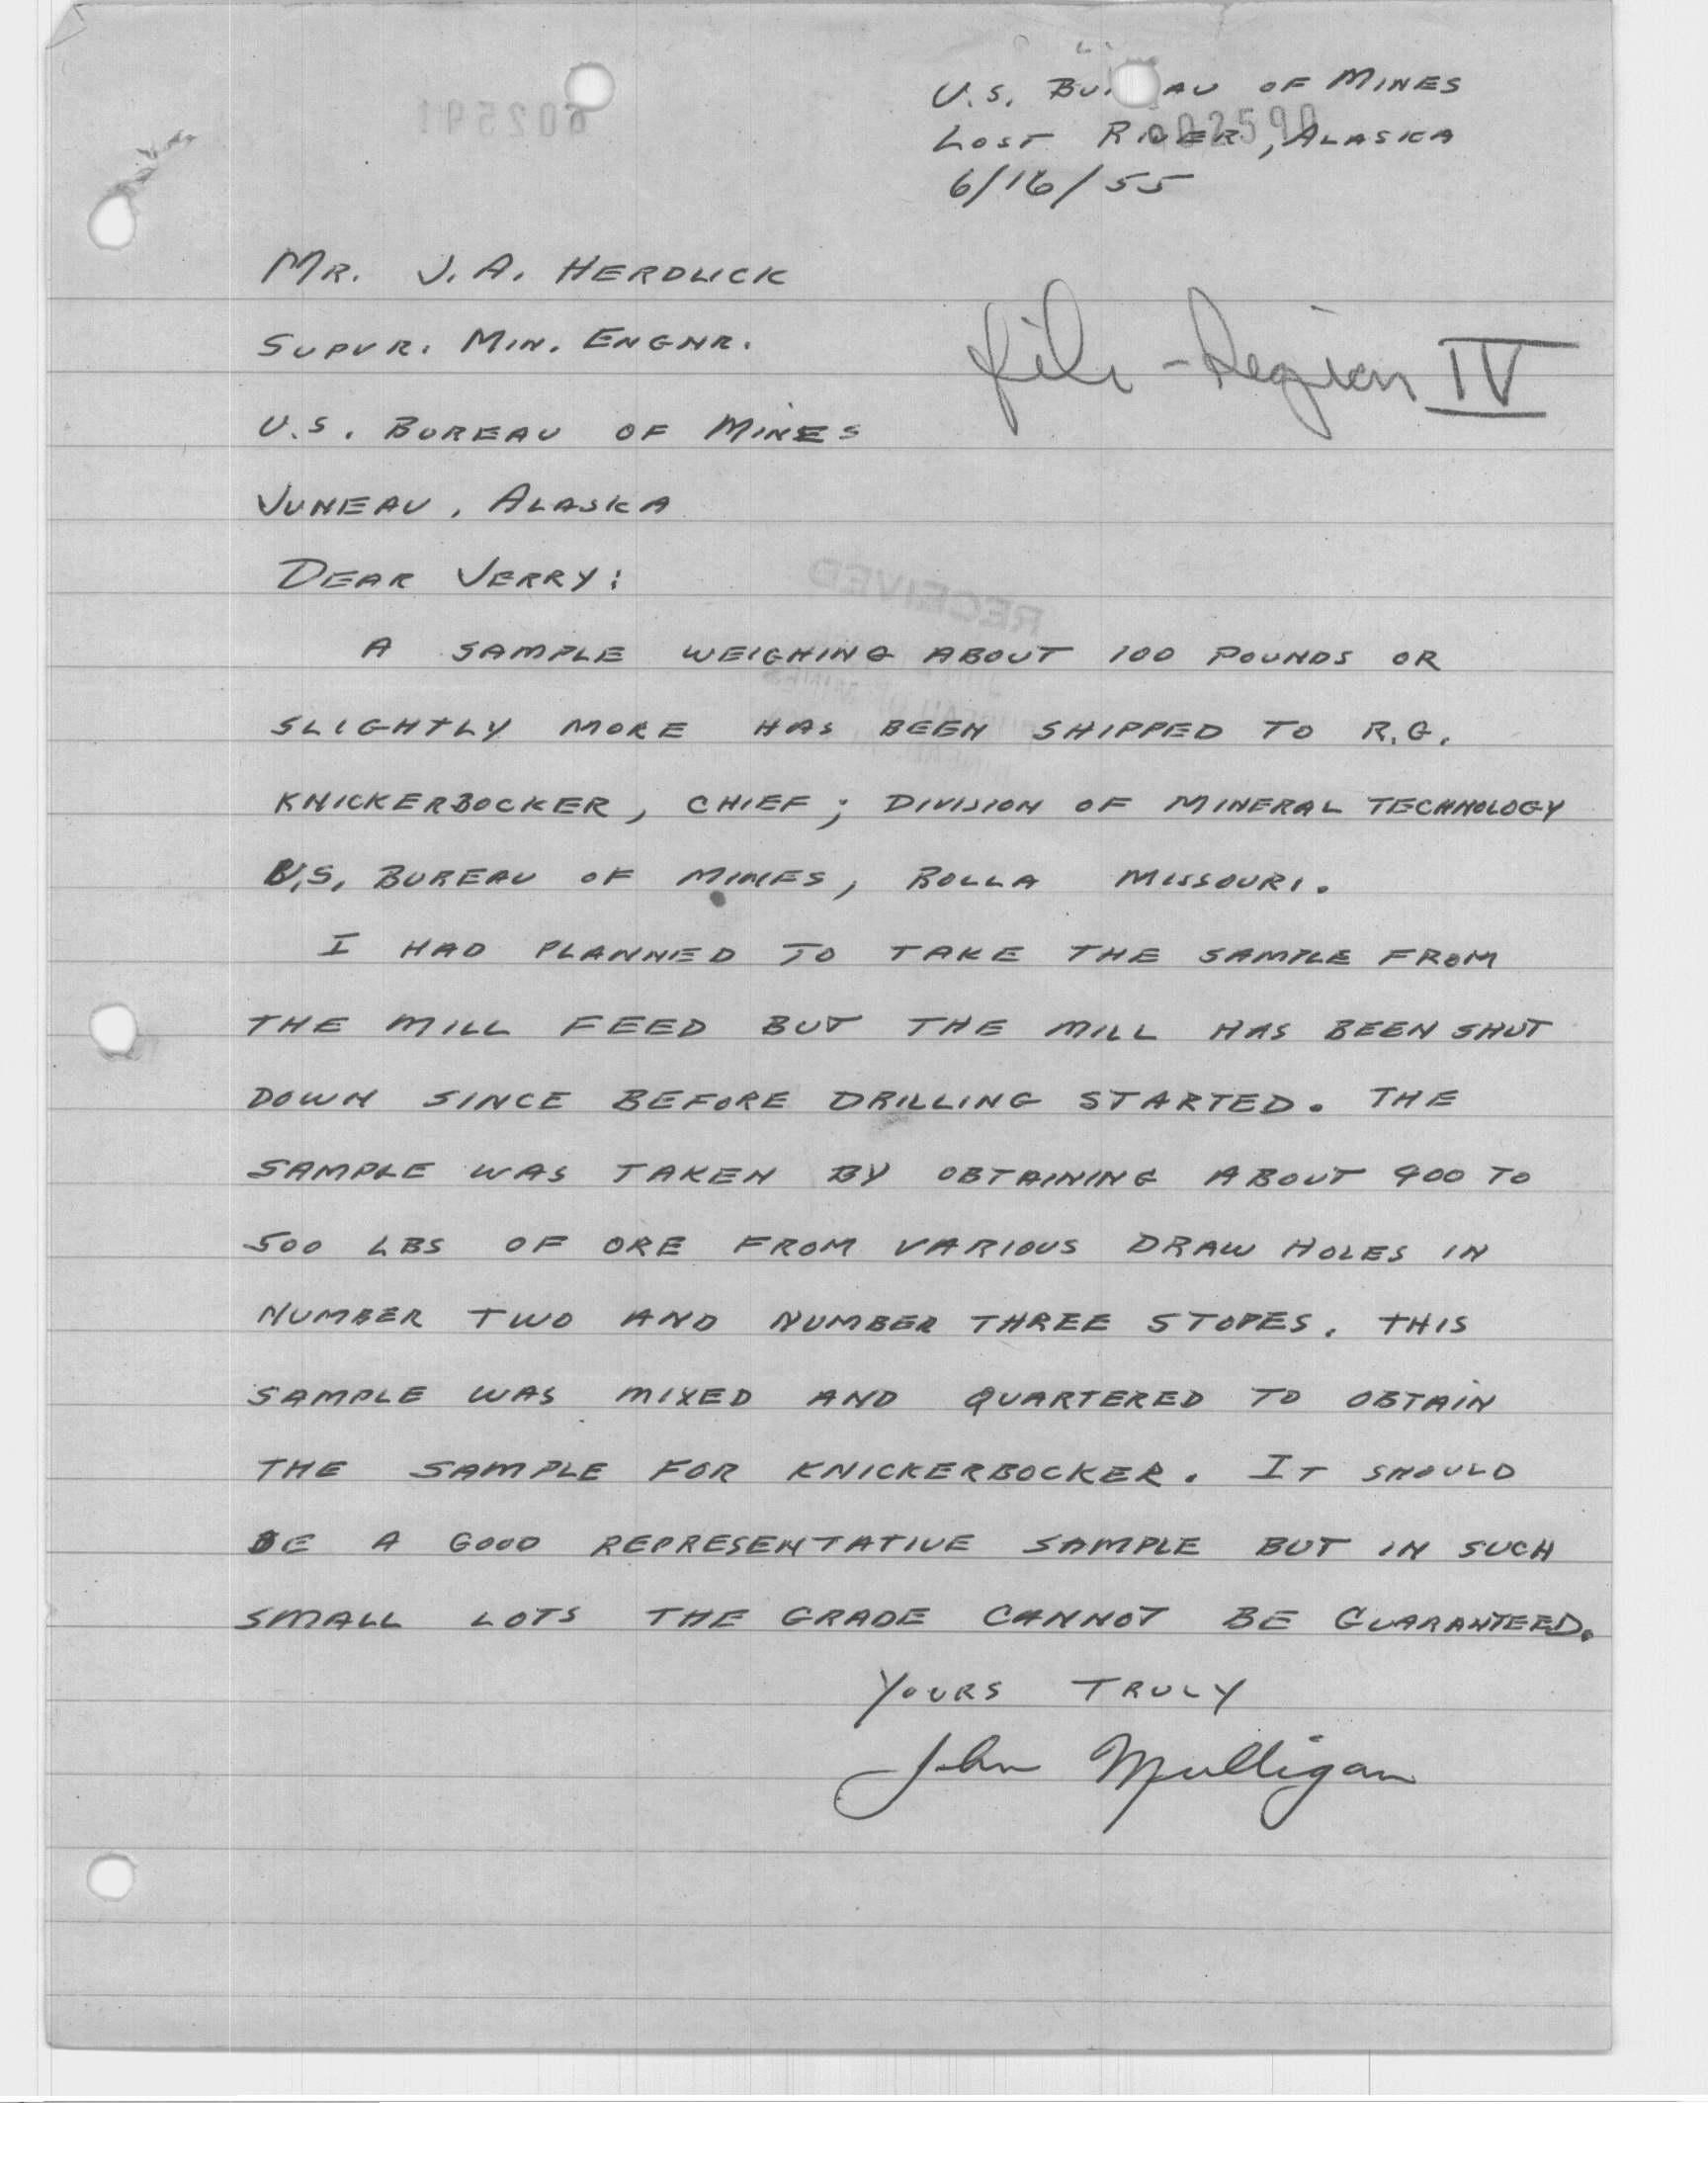 U.S. Bureau of Mines
Lost River, Alaska
002590
602591
6/16/55
Mr. J.A. Herdlick
Supvr. Min. Engnr.
file - Region IV
U.S. Bureau of Mines
Juneau, Alaska
Dear Jerry:
RECEIVED
A sample weighing about 100 pounds or
slightly more has been shipped to R.G.
Knickerbocker, Chief; Division of Mineral Technology
U.S. Bureau of Mines, Rolla Missouri.
I had planned to take the sample from
the mill feed but the mill has been shut
down since before drilling started. The
sample was taken by obtaining about 400 to
500 lbs of ore from various draw holes in
number two and number three stopes. This
sample was mixed and quartered to obtain
the sample for Knickerbocker. It should
be a good representative sample but in such
small lots the grade cannot be guaranteed.
Yours truly
John Mulligan